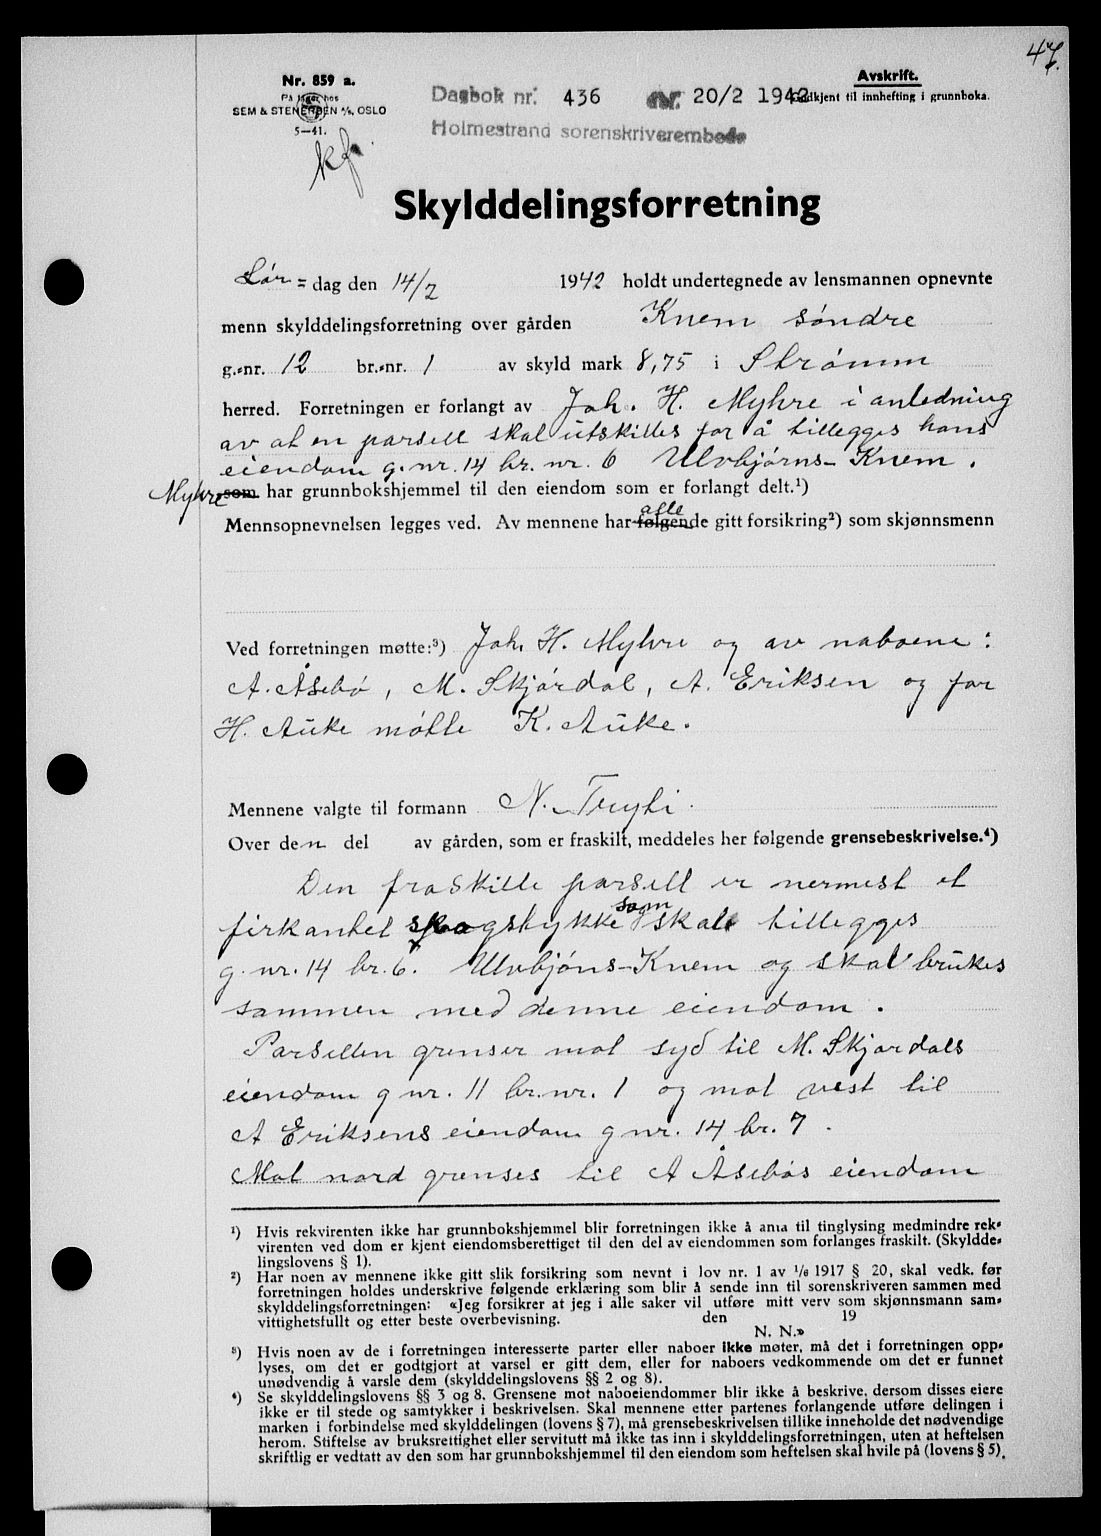 47.
Nr. 859 a.
På lager hos
SEM & STENERSEN A/S, OSLO
5—41.
kf.
Dagbok nr. 436 av 20/2 1942
Holmestrand sorenskriverembede
Avskrift.
Godkjent til innhefting i grunnboka.
Skylddelingsforretning
Lør=dag den 14/2 1942 holdt undertegnede av lensmannen opnevnte
menn skylddelingsforretning over gården Knem søndre
g.-nr. 12 br.-nr. 1 av skyld mark 8,75 i Strømm
herred. Forretningen er forlangt av Joh. H. Myhre i anledning
av at en parsell skal utskilles for å tillegges hans
eiendom g. nr. 14 br. nr. 6 Ulvbjørns-Knem.
Myhre som har grunnbokshjemmel til den eiendom som er forlangt delt.¹)
Mennsopnevnelsen legges ved. Av mennene har følgende alle gitt forsikring²) som skjønnsmenn
Ved forretningen møtte:³) Joh. H. Myhre og av naboene:
A. Åsebø, M. Skjørdal, A. Eriksen og for
H. Auke møtte K. Auke.
Mennene valgte til formann N. Trysti.
Over den del av gården, som er fraskilt, meddeles her følgende grensebeskrivelse.⁴)
Den fraskilte parsell er nermest et
firkantet skogstykke som skal tillegges
g. nr. 14 br. 6. Ulvbjøns-Knem og skal brukes
sammen med denne eiendom.
Parsellen grenser mot syd til M. Skjørdals
eiendom g nr. 11 br. nr. 1 og mot vest til
A Eriksens eiendom g nr. 14 br. 7.
Mot nord grenses til A Åsebøs eiendom
¹) Hvis rekvirenten ikke har grunnbokshjemmel blir forretningen ikke å anta til tinglysing medmindre rek-
virenten ved dom er kjent eiendomsberettiget til den del av eiendommen som forlanges fraskilt. (Skyldde-
lingslovens § 1).
²) Har noen av mennene ikke gitt slik forsikring som nevnt i lov nr. 1 av 1/6 1917 § 20, skal vedk. før
forretningen holdes underskrive følgende erklæring som blir å sende inn til sorenskriveren sammen med
skylddelingsforretningen: «Jeg forsikrer at jeg i alle saker vil utføre mitt verv som skjønnsmann sam-
vittighetsfullt og etter beste overbevisning. den 19
N. N.»
³) Hvis noen av de i forretningen interesserte parter eller naboer ikke møter, må det i forretningen opp-
lyses, om det er godtgjort at varsel er gitt dem, eller for naboers vedkommende om det er funnet
unødvendig å varsle dem (skylddelingslovens §§ 2 og 8).
⁴) Se skylddelingslovens §§ 3 og 8. Grensene mot naboeiendommer blir ikke å beskrive, dersom disses eiere
ikke er til stede og samtykker i beskrivelsen. Skal mennene etter partenes forlangende utføre delingen i
marken i forbindelse med skylddelingen (lovens § 7), må grensebeskrivelsen tillike inneholde det nødvendige
herom. Stiftelse av bruksrettighet eller servitutt må ikke tas inn i skylddelingsforretningen, uten at heftelsen
skriftlig er vedtatt av den som har grunnbokshjemmel til den eiendom som heftelsen skal hvile på (lovens § 5).